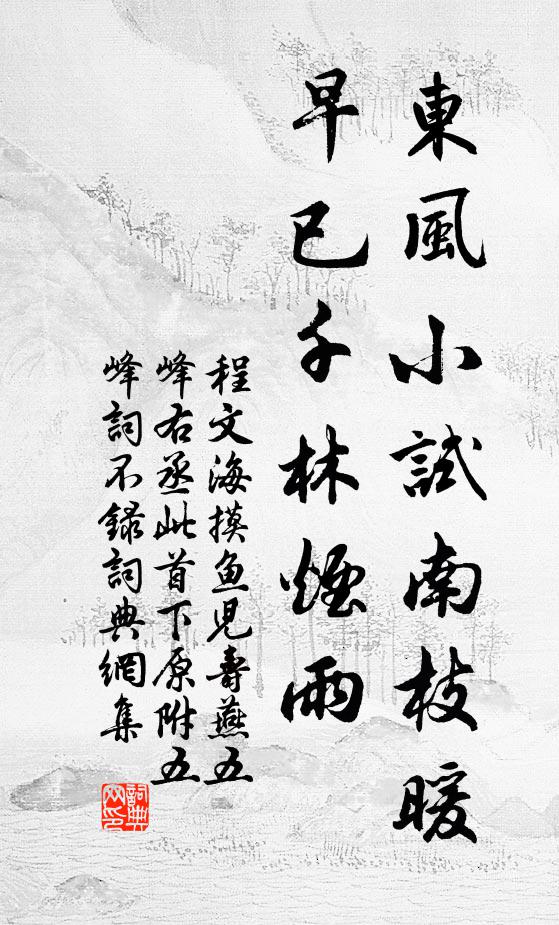 東風小試南枝暖
早已千林煙雨
程文海摸鱼児壽燕五
峰右丞此首下原附五
峰詞不錄詞典網集
詞典网印